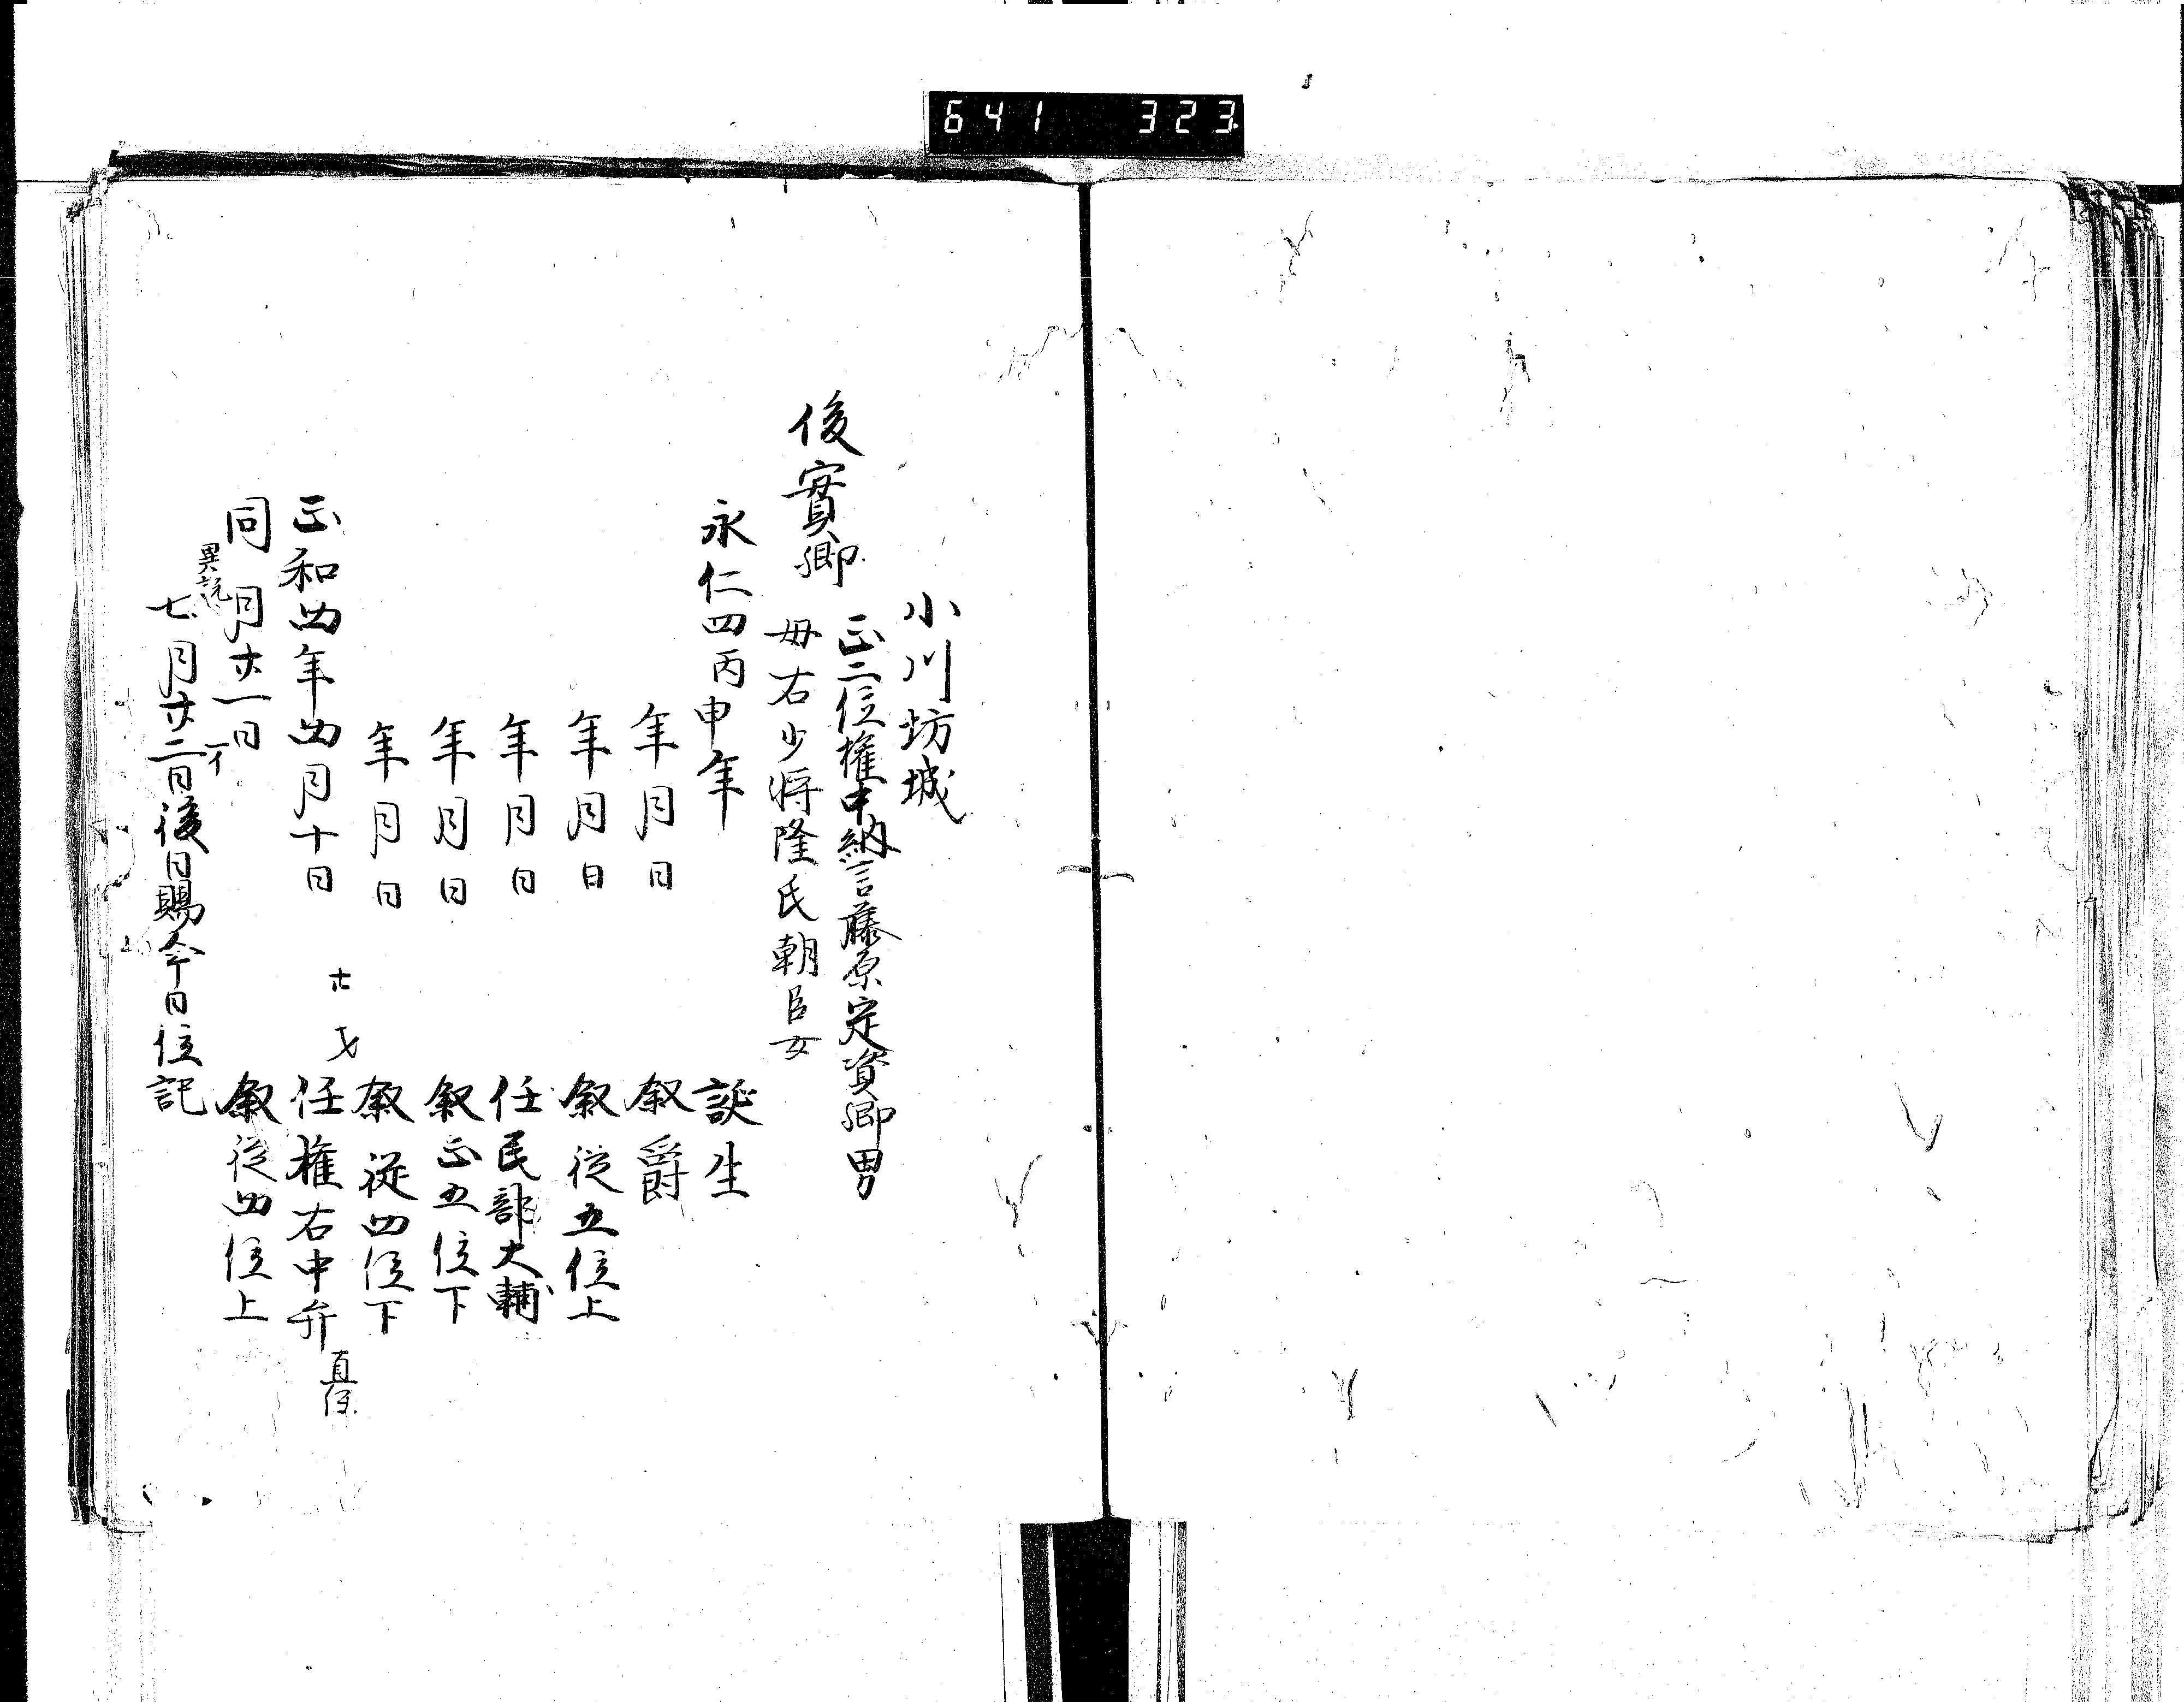 641 323
小川坊城
俊實卿 正二位權中納言藤原定資卿男
母右少将隆氏朝臣女
永仁四丙申年 誕生
年月日 叙爵
年月日 叙従五位上
年月日 任民部大輔
年月日 叙正五位下
年月日 叙従四位下
正和四年四月十日 廿才 任權右中弁
同月廿一日 叙従四位上
異説
七月廿二日後日賜今日位記